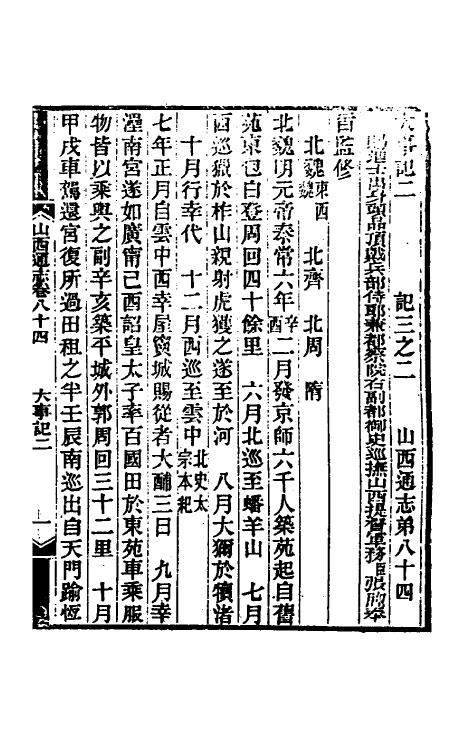 大事記二　記三之二　山西通志第八十四
賜進士出身頭品頂戴兵部侍郎兼都察院右副都御史巡撫山西提督軍務臣張煦奉
旨監修
北魏東西魏　北齊　北周　隋
北魏明元帝泰常六年辛酉二月發京師六千人築苑起自舊
苑東包白登周回四十餘里　六月北巡至蟠羊山　七月
西巡獵於柞山親射虎獲之遂至於河　八月大獮於犢渚
十月行幸代　十二月西巡至雲中北史太宗本紀
七年正月自雲中西幸屋竇城賜從者大酺三日　九月幸
灅南宮遂如廣甯己酉詔皇太子率百國田於東苑車乘服
物皆以乘輿之副辛亥築平城外郭周回三十二里　十月
甲戌車駕還宮復所過田租之半壬辰南巡出自天門踰恆
山西通志卷八十四　大事記二　一